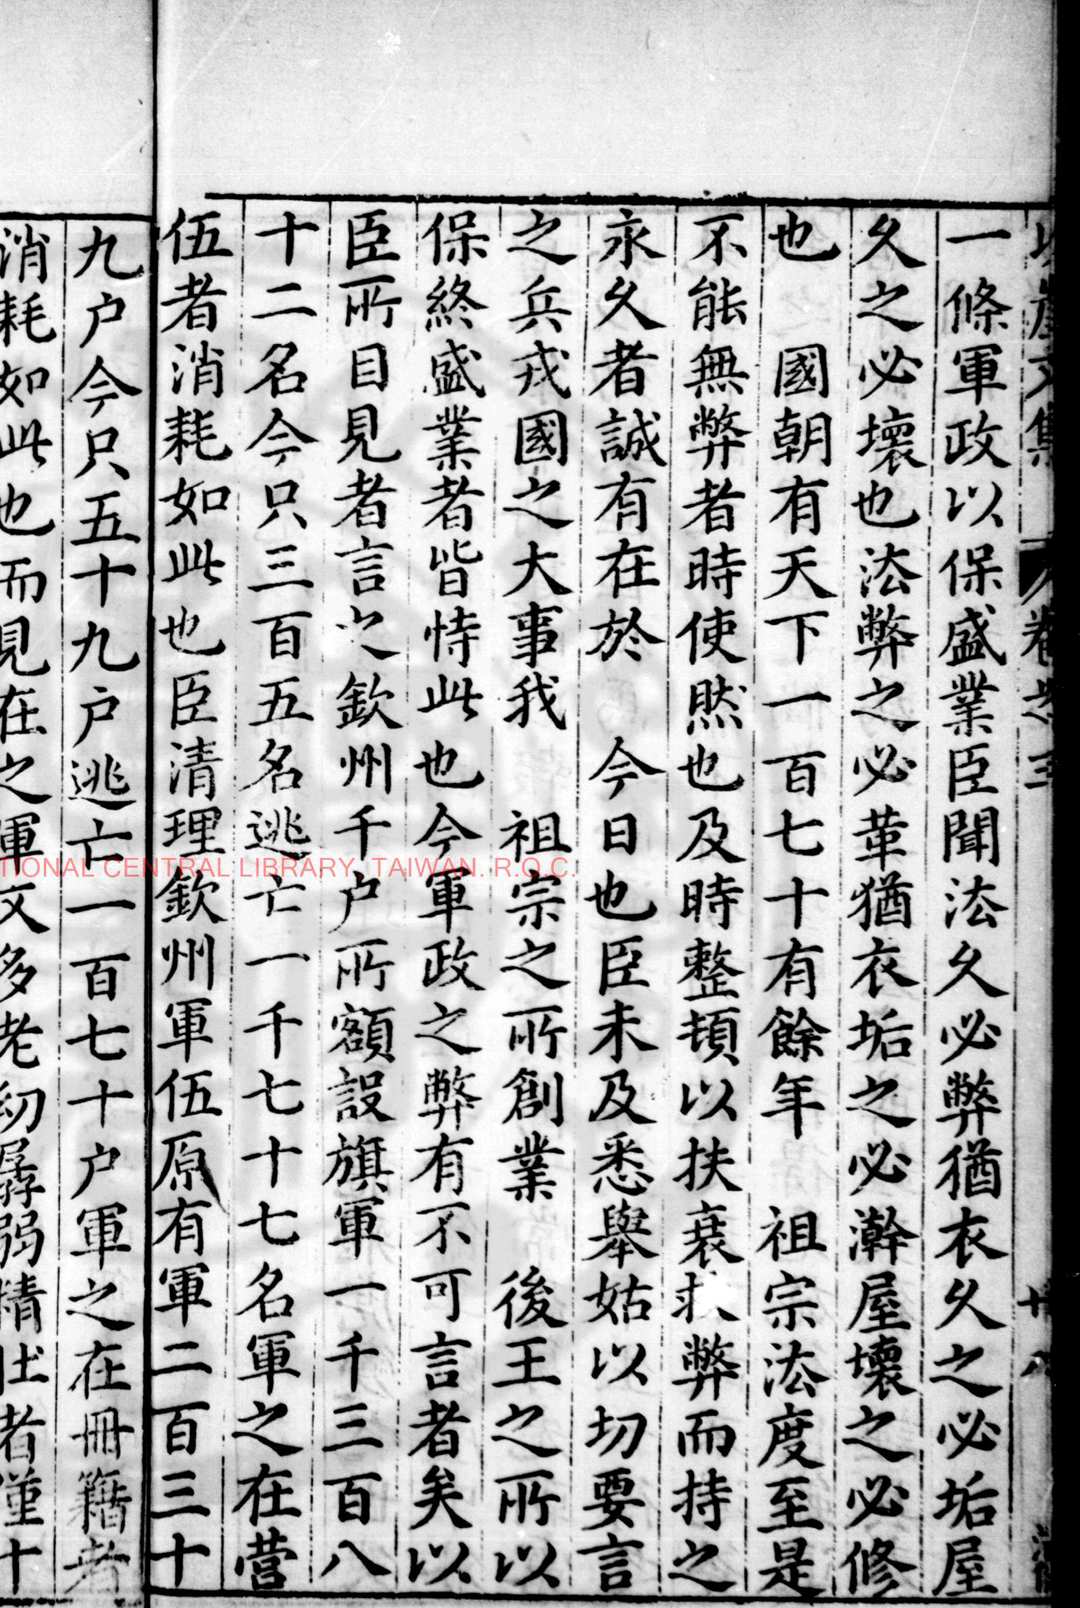 一條軍政以保盛業臣聞法久必弊猶衣久之必垢屋
久之必壞也法弊之必革猶衣垢之必澣屋壞之必修
也　國朝有天下一百七十有餘年　祖宗法度至是
不能無弊者時使然也及時整頓以扶衰救弊而持之
永久者誠有在於　今日也臣未及悉舉姑以切要言
之兵戎國之大事我　祖宗之所創業　後王之所以
保終盛業者皆恃此也今軍政之弊有不可言者矣以
臣所目見者言之欽州千户所額設旗軍一千三百八
十二名今只三百五名逃亡一千七十七名軍之在營
伍者消耗如此也臣清理欽州軍伍原有軍二百三十
九户今只五十九户逃亡一百七十户軍之在冊籍者
消耗如此也而見在之軍又多老幼孱弱精壯者僅十
NATIONAL CENTRAL LIBRARY, TAIWAN. R.O.C.